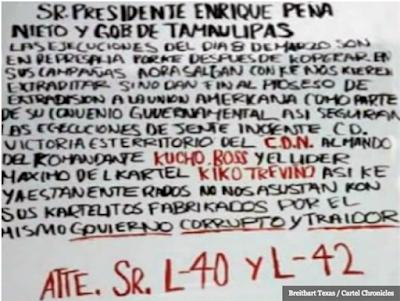 SR. PRESIDENTE ENRIQUE PEÑA
NIETO Y GOB DE TAMAULIPAS
LAS EJECUCIONES DEL DIA 8 DE MARZO SON
EN REPRESALIA PORKE DESPUES DE KOPERAR EN
SUS CAMPAÑAS AORA SALGAN CON KE NOS KIEREN
EXTRADITAR SI NO DAN FIN AL PROSESO DE
EXTRADISION A LA UNION AMERICANA COMO PARTE
DE SU CONVENIO GUVERNAMENTAL ASI SEGUIRAN
LAS EJECUCIONES DE JENTE INOCENTE CD.
VICTORIA ES TERRITORIO DEL C.D.N. AL MANDO
DEL KOMANDANTE KUCHO.BOSS Y EL LIDER
MAXIMO DEL KARTEL KIKO TREVIÑO ASI KE
YA ESTAN ENTERADOS NO NOS ASUSTAN KON
SUS KARTELITOS FABRIKADOS POR EL
MISMO GOVIERNO CORRUPTO Y TRAIDOR
ATTE. SR. L-40 Y L-42
Breitbart Texas / Cartel Chronicles